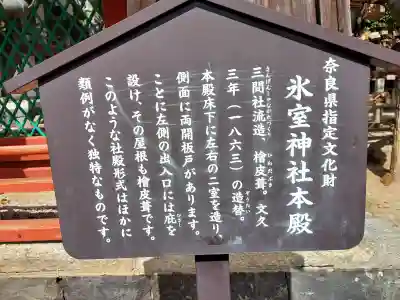 奈良県指定文化財
氷室神社本殿
さんげんしゃながれづくり ひわだぶき
三間社流造、檜皮葺。文久
三年(一八六三)の造替。
ぞうたい
本殿床下に左右の二室を造り、
側面に両開板戸があります。
ことに左側の出入口には庇を
ひさし
設け、その屋根も檜皮葺です。
このような社殿形式はほかに
類例がなく独特なものです。